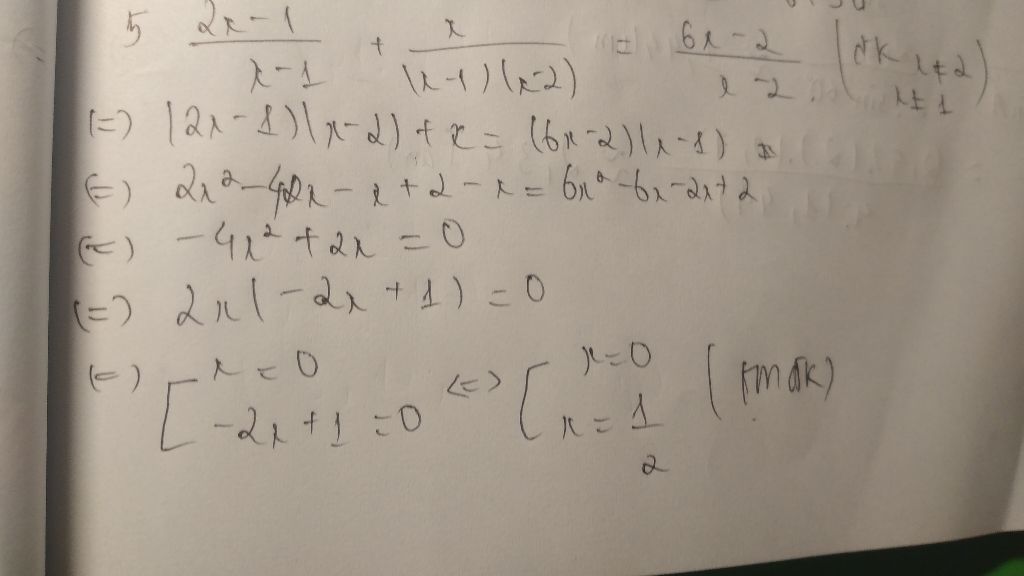 5 (2x-1)/(x-1) + x/((x-1)(x-2)) = (6x-2)/(x-2) (đk x≠2 x≠1)
(=) (2x-1)(x-2)+x = (6x-2)(x-1)
(=) 2x²-4x-x+2-x = 6x²-6x-2x+2
(=) -4x²+2x = 0
(=) 2x(-2x+1) = 0
(=) [ x=0 <=> [ x=0 (tmđk)
-2x+1=0 x=1/2